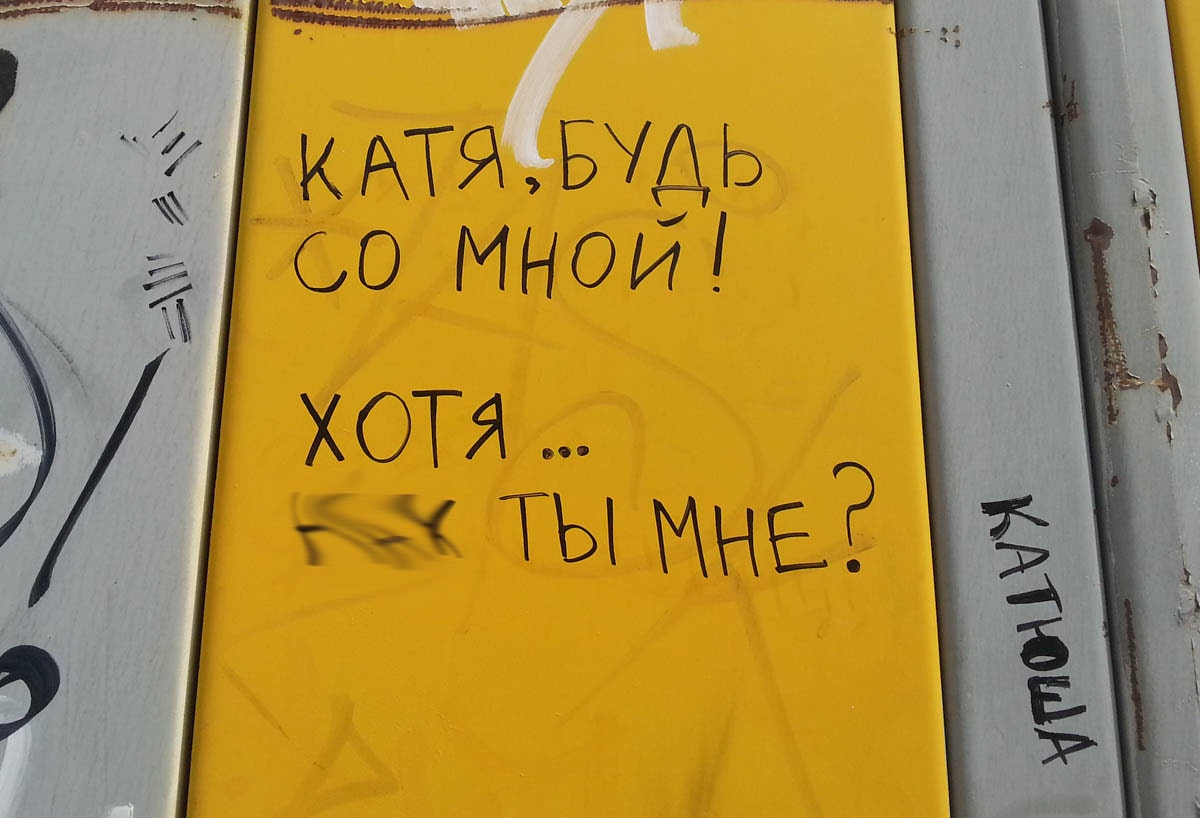 КАТЯ, БУДЬ
СО МНОЙ!
ХОТЯ...
ТЫ МНЕ?
КАТЮША